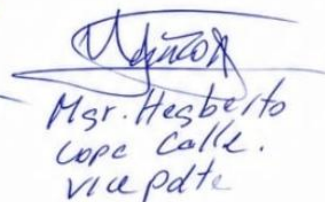 Mgr. Hegberto
Lopc Calle.
vice pdte